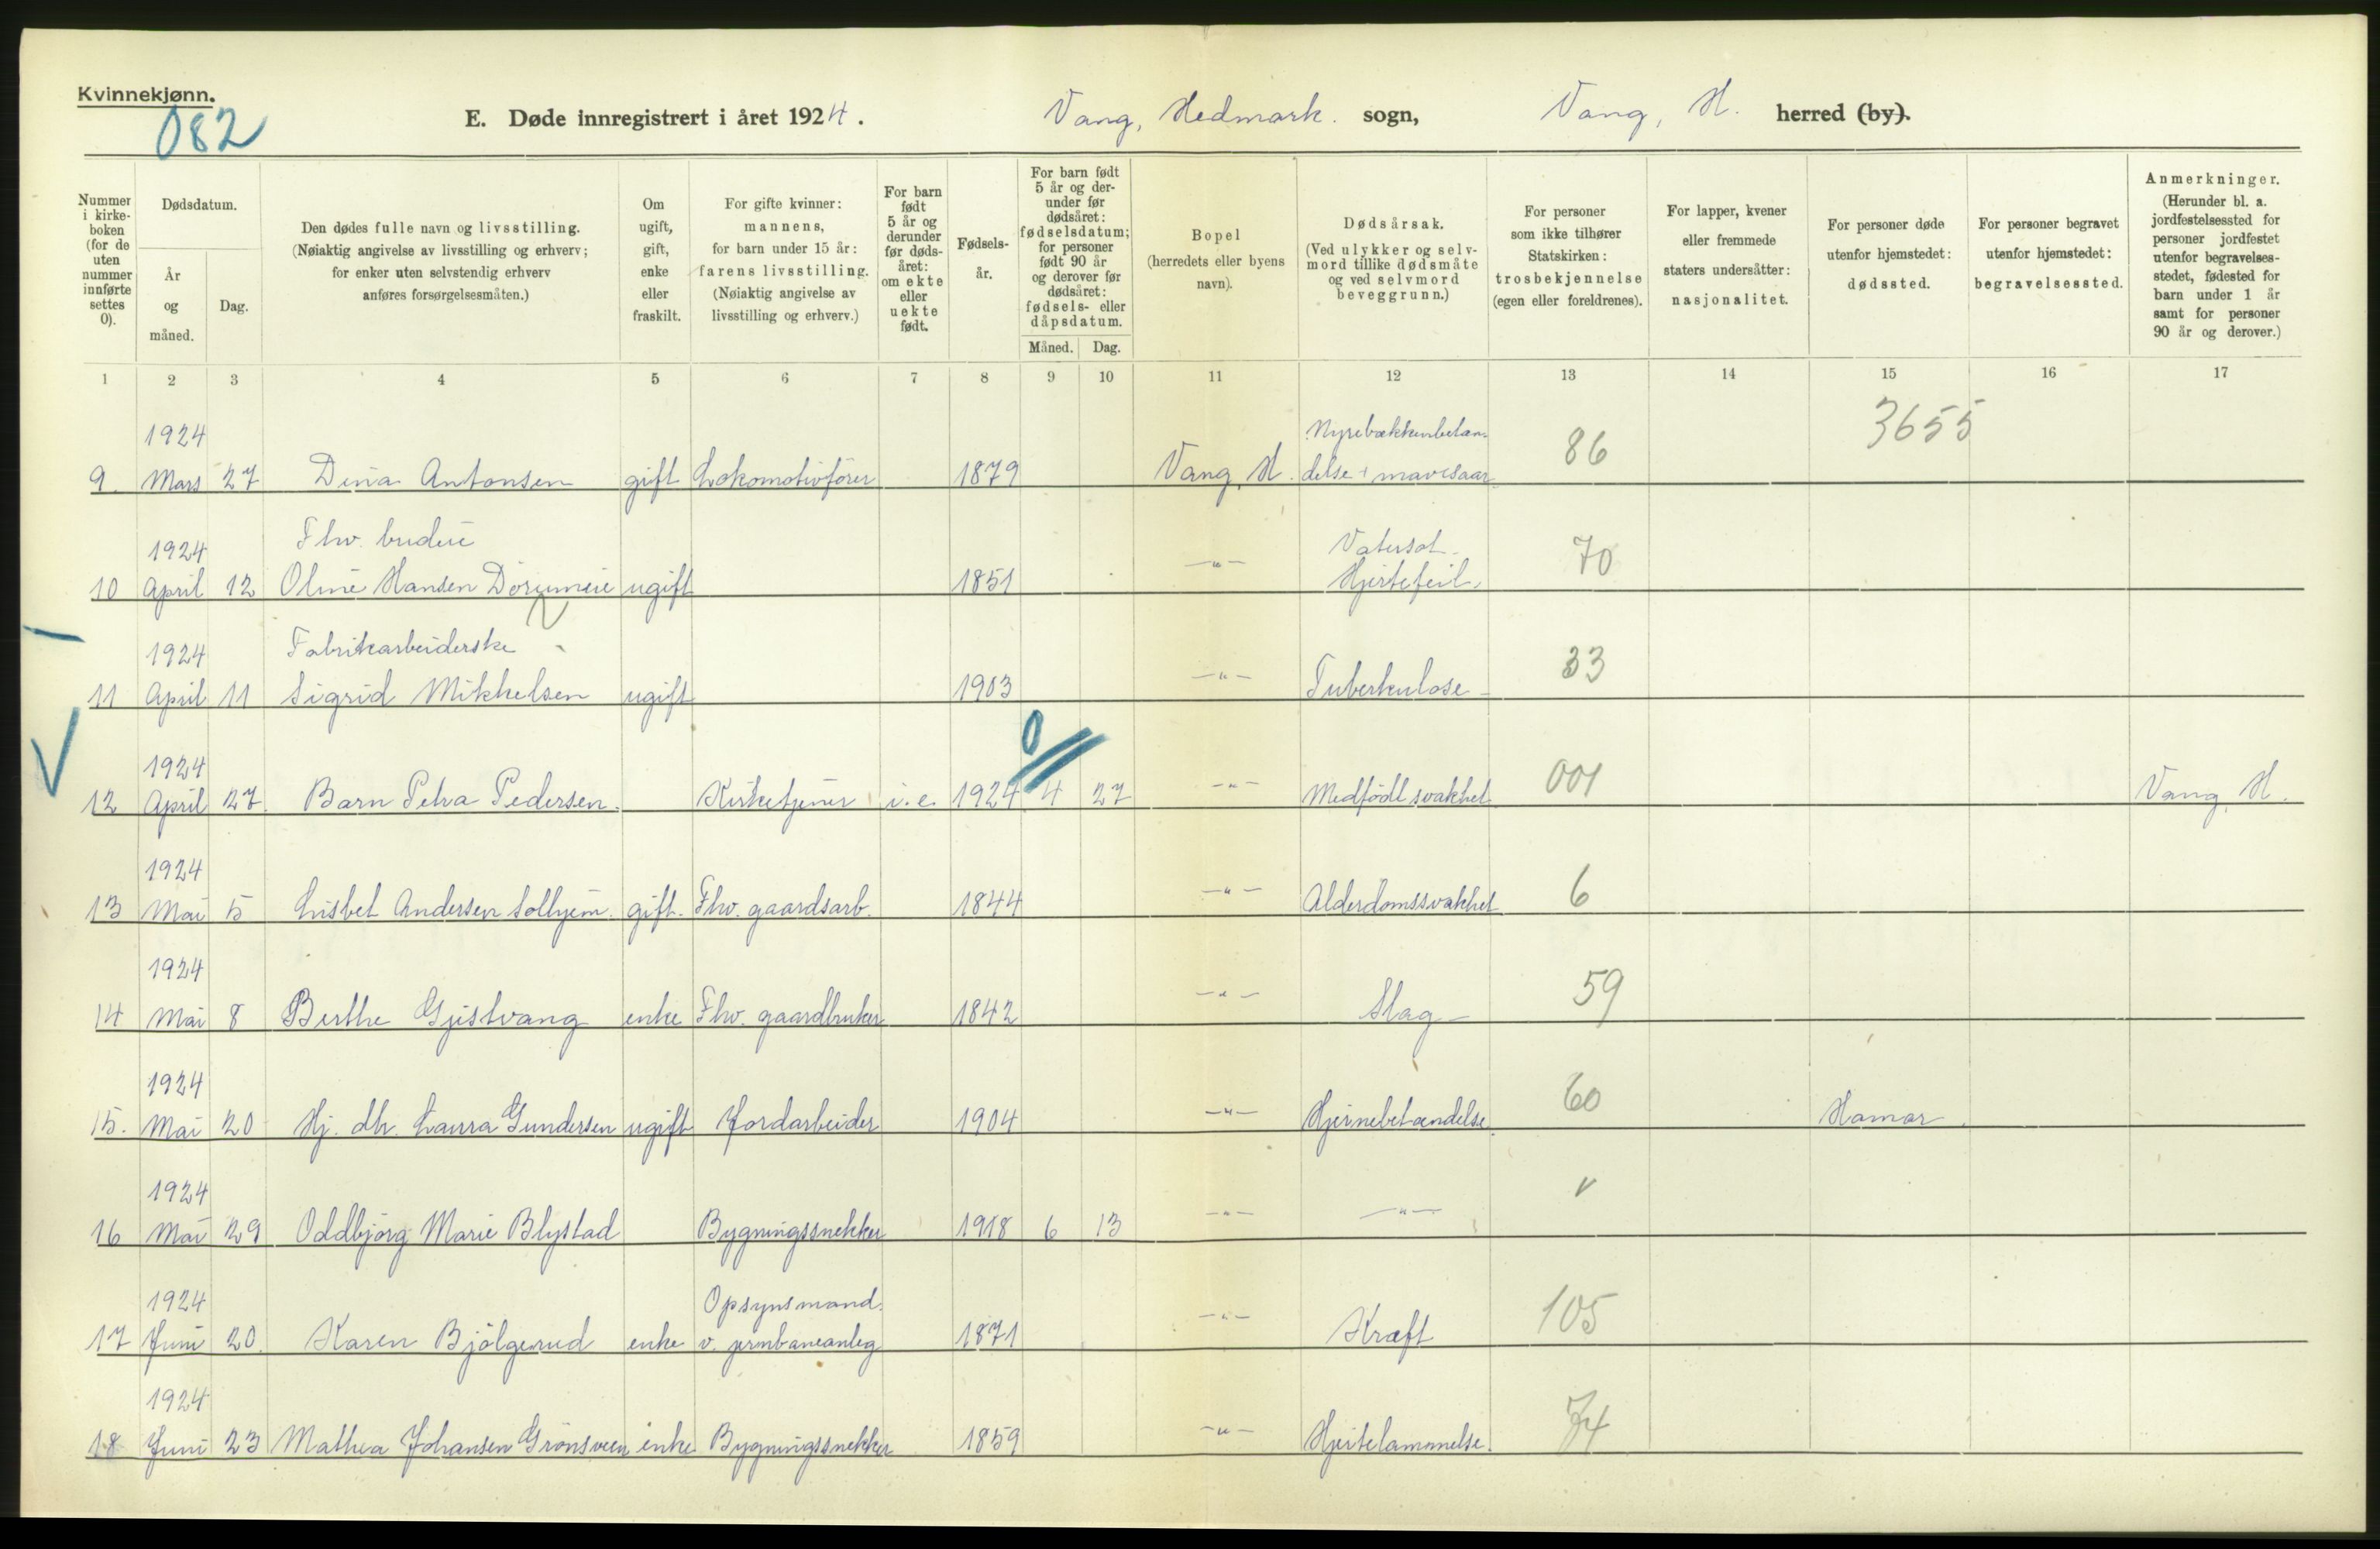 Kvinnekjønn.
082
E. Døde innregistrert i året 1924. Vang, Hedmark. sogn, Vang, H. herred (by).
Nummer i kirkeboken (for de uten nummer innførte settes 0).
Dødsdatum.
År og måned.
Dag.
Den dødes fulle navn og livsstilling.
(Nøiaktig angivelse av livsstilling og erhverv;
for enker uten selvstendig erhverv
anføres forsørgelsesmåten.)
Om ugift, gift, enke eller fraskilt.
For gifte kvinner:
mannens,
for barn under 15 år:
farens livsstilling.
(Nøiaktig angivelse av
livsstilling og erhverv.)
For barn født 5 år og derunder før dødsåret: om ekte eller uekte født.
Fødselsår.
For barn født 5 år og derunder før dødsåret: fødselsdatum; for personer født 90 år og derover før dødsåret: fødsels- eller dåpsdatum.
Måned. Dag.
Bopel
(herredets eller byens
navn).
Dødsårsak.
(Ved ulykker og selvmord tillike dødsmåte
og ved selvmord
beveggrunn.)
For personer
som ikke tilhører
Statskirken:
trosbekjennelse
(egen eller foreldrenes).
For lapper, kvener
eller fremmede
staters undersåtter:
nasjonalitet.
For personer døde
utenfor hjemstedet:
dødssted.
For personer begravet
utenfor hjemstedet:
begravelsessted.
Anmerkninger.
(Herunder bl. a.
jordfestelsessted for
personer jordfestet
utenfor begravelsesstedet, fødested for
barn under 1 år
samt for personer
90 år og derover.)
1 2 3 4 5 6 7 8 9 10 11 12 13 14 15 16 17
1924 Nyrebækkenbetæn 86 3655
9. Mars 27 Dina Antonsen gift Lokomotivfører 1879 Vang, H. delse + mavesaar
1924 Fhv. budeie Vatersot. 70
10 April 12 Oline Hansen Dørumeie ugift 1851 -"- Hjertefeil.
1924 Fabrikarbeiderske 33
11 April 11 Sigrid Mikkelsen ugift 1903 -"- Tuberkulose
1924 0 001
12 April 27. Barn Petra Pedersen. Kirketjener i.e. 1924 4 27 -"- Medfödt svakhet Vang, H.
1924 6
13 Mai 5 Lisbet Andersen Solhjem. gift. Fhv. gaardsarb. 1844 -"- Alderdomssvakhet
1924 59
14 Mai 8 Berthe Gjestvang enke Fhv. gaardbruker 1842 -"- Slag
1924 60
15. Mai 20 Hj. dtr. Laura Gundersen ugift Jordarbeider 1904 -"- Hjernebetændelse. Hamar.
1924
16 Mai 29 Oddbjörg Marie Blystad Bygningssnekker 1918 6 13 -"- -"-
1924 Opsynsmand. 105
17 Juni 20. Karen Bjölgerud enke v. jernbaneanleg 1871 -"- Kræft
1924 74
18 Juni 23 Mathea Johansen Grönsveen enke Bygningssnekker 1859 -"- Hjertelammelse.